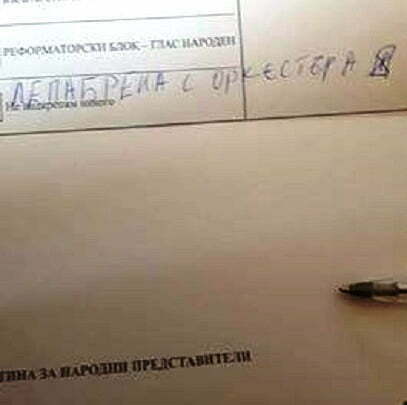 РЕФОРМАТОРСКИ БЛОК – ГЛАС НАРОДЕН
ЛЕПАБРЕНА С ОРКЕСТЕРА
Не подкрепям никого
ТИНА ЗА НАРОДНИ ПРЕДСТАВИТЕЛИ